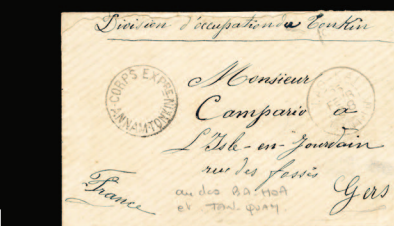 Division d'occupation du Tonkin
CORPS EXPRE ANNAM-TONKIN
Monsieur
Campario a
L'Isle-en-Jourdain
rue des fossés
Gers
France
au dos BA-HOA
et